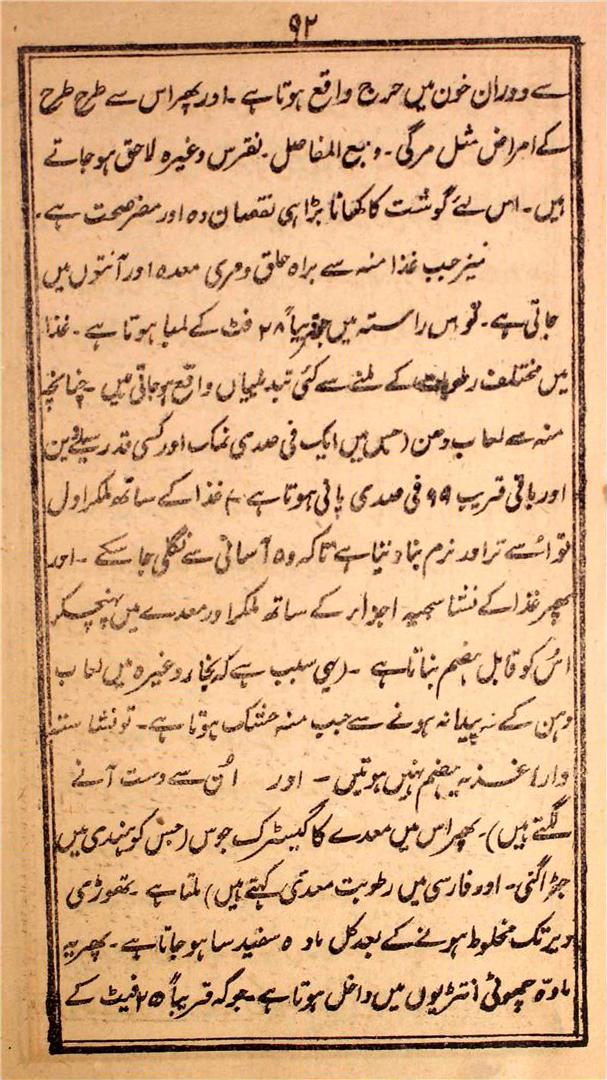 ۹۲
سے دوران خون میں حرج واقع ہوتا ہے ۔ اور پھر اس سے طرح طرح
کے امراض مثل مرگی ۔ وجع المفاصل ۔ نقرس وغیرہ لاحق ہو جاتے
ہیں ۔ اس لئے گوشت کا کھانا بڑا ہی نقصان دہ اور مضر صحت ہے ۔
نیز جب غذا منہ سے براہ حلق و مری معدہ اور آنتوں میں
جاتی ہے ۔ تو اس راستہ میں جو تقریباً ۲۸ فٹ کے لمبا ہوتا ہے ۔ غذا
میں مختلف رطوبات کے ملنے سے کئی تبدیلیاں واقع ہو جاتی ہیں ۔ چنانچہ
منہ سے لعاب دہن (جس میں ایک فی صدی نمک اور کسی قدر سیلیوین
اور باقی قریب ۹۹ فی صدی پانی ہوتا ہے ) غذا کے ساتھ ملکر اول
تو اُسے تر اور نرم بنا دیتا ہے تاکہ وہ آسانی سے نگلی جا سکے ۔ اور
پھر غذا کے نشاستہ اجزاء کے ساتھ ملکر اور معدے میں پہنچکر
اس کو قابل ہضم بناتا ہے ۔ (یہی سبب ہے کہ بخار وغیرہ میں لعاب
دہن کے نہ پیدا نہ ہونے سے جب منہ خشک ہوتا ہے ۔ تو نشاستہ
دار اغذیہ ہضم نہیں ہوتیں ۔ اور اُن سے دست آنے
لگتے ہیں) ۔ پھر اس میں معدے کا گیسٹرک جوس (جس کو ہندی میں
جڑاگنی ۔ اور فارسی میں رطوبت معدی کہتے ہیں) ملتا ہے ۔ تھوڑی
دیر تک مخلوط ہونے کے بعد کل مادہ سفید سا ہو جاتا ہے ۔ پھر یہ
مادّہ چھوٹی انتڑیوں میں داخل ہوتا ہے ۔ جو کہ قریباً ۲۵ فیٹ کے